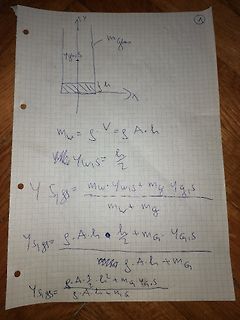 ①
y
y_G,S
m_Glas
h
x
m_W = ρ V = ρ A · h
y_W,S = h/2
y_S,gs = (m_W · y_W,S + m_G · y_G,S) / (m_W + m_G)
y_S,gs = (ρ · A · h · h/2 + m_G · y_G,S) / (ρ · A · h + m_G)
y_S,gs = (ρ · A · ½ · h² + m_G · y_G,S) / (ρ · A · h + m_G)